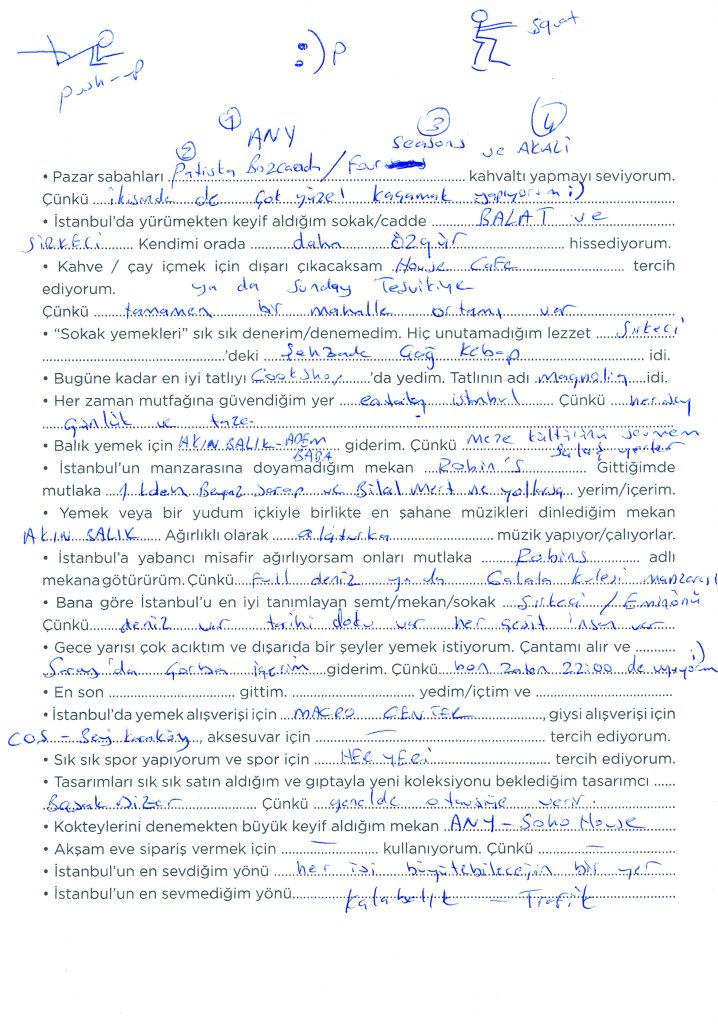 push-up
:) P
squat
① ③ ④
② ANY Seasons ve AKALİ
• Pazar sabahları Patiska Bozcaada / Four kahvaltı yapmayı seviyorum.
Çünkü ikisinde de çok güzel kaçamak yapıyorum :)
• İstanbul'da yürümekten keyif aldığım sokak/cadde BALAT ve
SİRKECİ Kendimi orada daha özgür hissediyorum.
• Kahve / çay içmek için dışarı çıkacaksam House Cafe tercih
ediyorum. ya da Sunday Teşvikiye
Çünkü tamamen bir mahalle ortamı var
• "Sokak yemekleri" sık sık denerim/denemedim. Hiç unutamadığım lezzet Sirkeci
'deki Şehzade Cağ Kebap idi.
• Bugüne kadar en iyi tatlıyı Cookshop 'da yedim. Tatlının adı magnolia idi.
• Her zaman mutfağına güvendiğim yer eataly istanbul Çünkü her şey
günlük ve taze
• Balık yemek için AKIN BALIK - ADEM BABA giderim. Çünkü meze kültürünü seven
salaş yerler
• İstanbul'un manzarasına doyamadığım mekan Robin's Gittiğimde
mutlaka Beyaz Şarap ve Bilal Mert ne yollarsa yerim/içerim.
• Yemek veya bir yudum içkiyle birlikte en şahane müzikleri dinlediğim mekan
AKIN BALIK Ağırlıklı olarak alaturka müzik yapıyor/çalıyorlar.
• İstanbul'a yabancı misafir ağırlıyorsam onları mutlaka Robins adlı
mekana götürürüm. Çünkü Full deniz ya da Galata Kulesi manzarası
• Bana göre İstanbul'u en iyi tanımlayan semt/mekan/sokak Sirkeci / Eminönü
Çünkü deniz var tarihi doku var her çeşit insan var
• Gece yarısı çok acıktım ve dışarıda bir şeyler yemek istiyorum. Çantamı alır ve :)
Saray'da Çorba içerim giderim. Çünkü ben zaten 22:00 de uyuyorum
• En son gittim. yedim/içtim ve
• İstanbul'da yemek alışverişi için MACRO CENTER, giysi alışverişi için
COS - Bey Karaköy, aksesuvar için — tercih ediyorum.
• Sık sık spor yapıyorum ve spor için HER YERİ tercih ediyorum.
• Tasarımları sık sık satın aldığım ve gıptayla yeni koleksiyonu beklediğim tasarımcı
Başak Dizer Çünkü genelde o tavsiye verir.
• Kokteylerini denemekten büyük keyif aldığım mekan ANY - Soho House
• Akşam eve sipariş vermek için — kullanıyorum. Çünkü —
• İstanbul'un en sevdiğim yönü her işi büyütebileceğin bir yer
• İstanbul'un en sevmediğim yönü kalabalık - Trafik